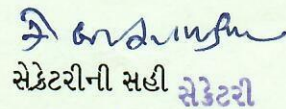 સેક્રેટરીની સહી સેક્રેટરી